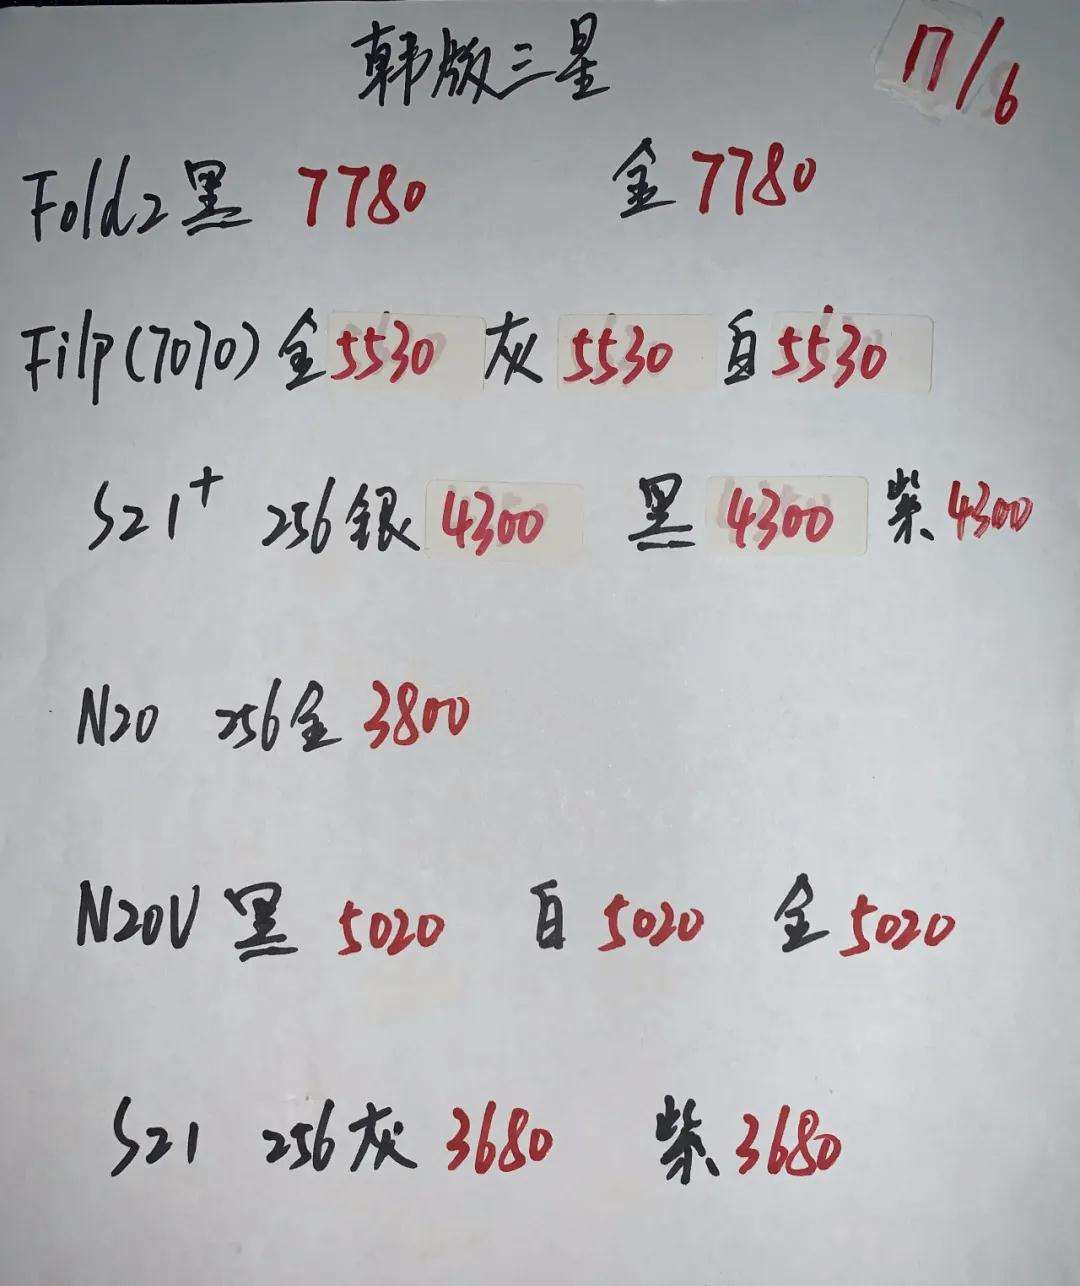 韩版三星 17/6
Fold2黑 7780 金7780
Filp(7070)金5530 灰5530 白5530
S21+ 256銀4300 黑4300 紫4300
N20 256金3800
N20U黑 5020 白5020 金5020
S21 256灰3680 紫3680